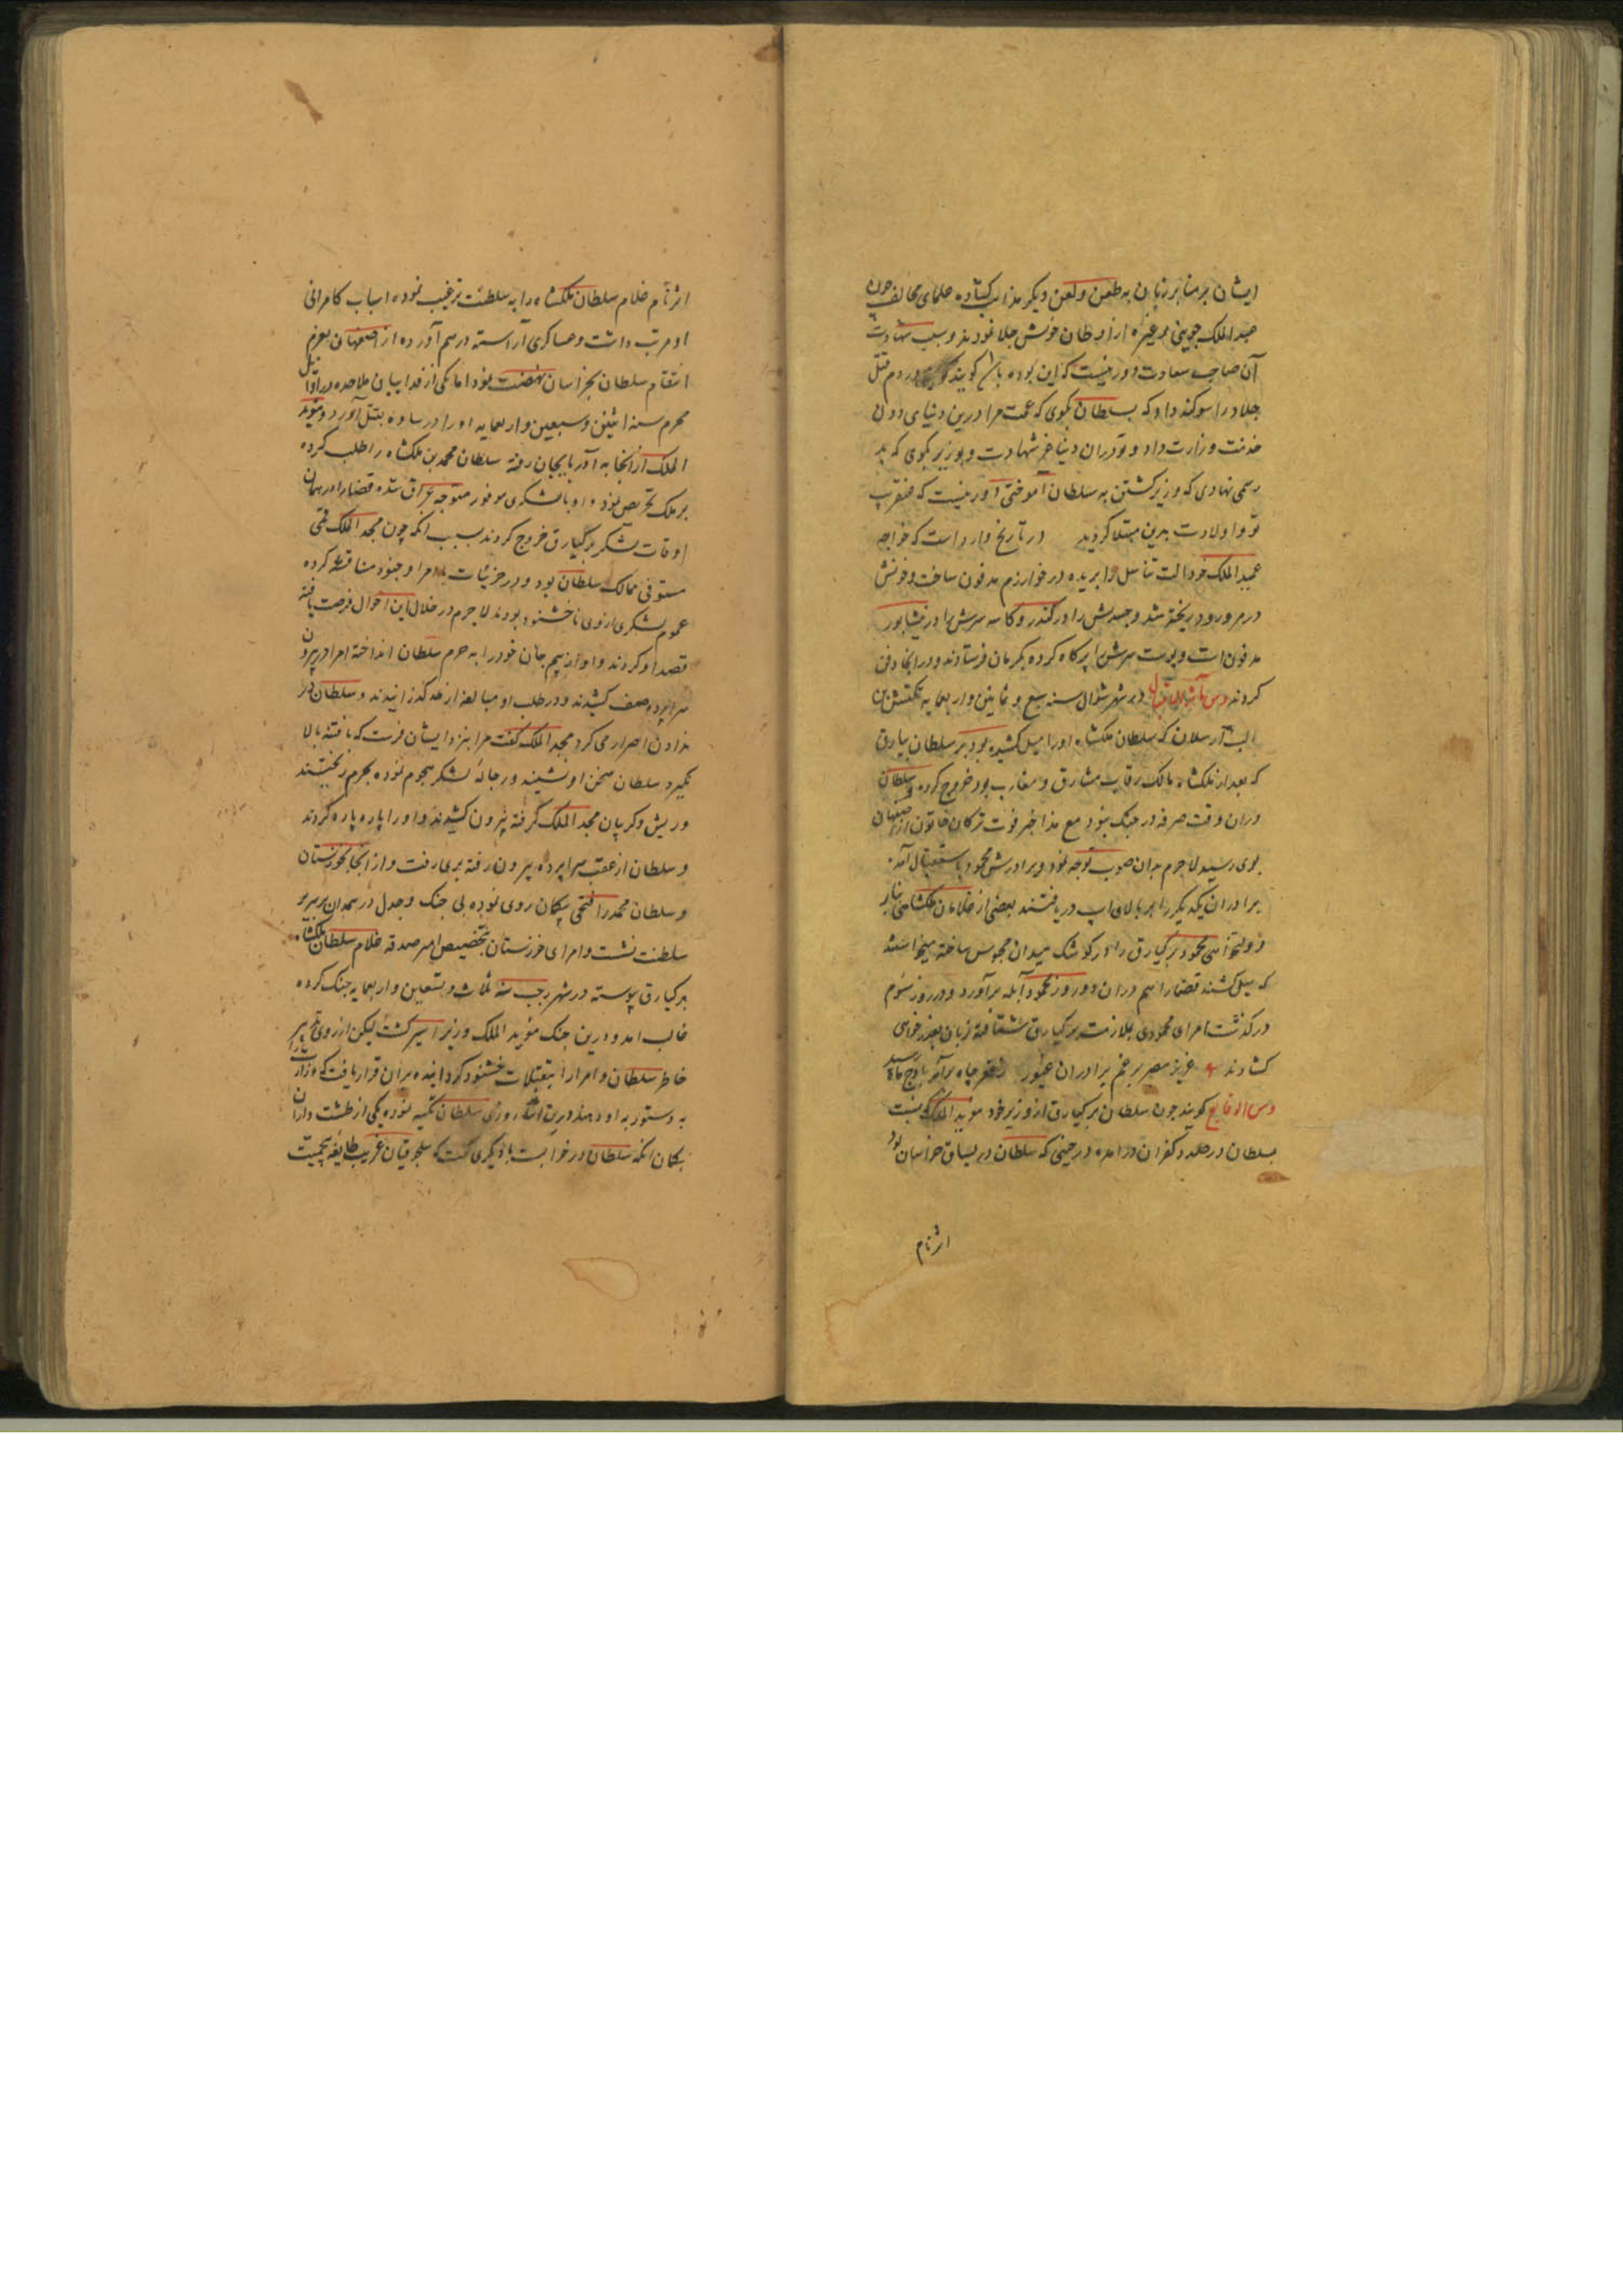 ایشان بر منابر زبان به طعن و لعن دیگر مذاهب کشاده علمای مخالف چون
عبد الملک جوینی و غیره از اوطان خویش جلا نمودند و سبب شهادت
آن صاحب سعادت دور نیست که این بوده باشد کویند که در دم قتل
جلاد را سوکند داد که بسلطان بکوی که عمت مرا درین دنیای دون
خدمت وزارت داد و تو دران دنیا شهادت و بوزیر بکوی که بد
رسمی نهادی که وزیر کشتن به سلطان آموختی دور نیست که عنقریب
تو و اولادت بدین مبتلا کردید در تاریخ وارد است که خواجه
عمید الملک خود الت تناسل را بریده در خوارزم مدفون ساخت و خونش
در مرو رود ریخته شد و جسدش را در کندر و کاسه سرش را در نیشابور
مدفون است و پوست سرش را پر کاه کرده بکرمان فرستادند و در انجا دفن
کردند و من در شهر شوال سنه سبع و ثمانین و اربعمایه تکش بن
الب ارسلان که سلطان ملکشاه اورا میل کشیده بود بر سلطان بیارق
که بعد از ملکشاه مالک رقاب مشارق و مغارب بود خروج کرده و سلطان
دران وقت صرفه در جنک نبود مع هذا خبر فوت ترکان خاتون از اصفهان
بوی رسید لا جرم بدان صوب توجه نمود و برادرش محمود باستقبال آمده
برادران یکدیکر را بر بالای اسپ دریافتند بعضی از غلامان ملکشاهی بنابر
دولتخواهی محمود برکیارق را در کوشک میدان محبوس ساخته میخواستند
که میل کشند قضارا هم دران دو روز محمود آبله برآورد و در روز سوم
درکذشت امرای محمودی بملازمت برکیارق شتافته زبان بعذر خواهی
کشادند عزیز مصر برغم برادران غیور ز قعر چاه برآمد باوج ماه رسید
و من الوقایع کویند چون سلطان برکیارق از وزیر خود موید الملک که نسبت
بسلطان در صدد کفران درآمده در حینی که سلطان در یساق خراسان بود
انر نام
انر نام غلام سلطان ملکشاه را به سلطنت ترغیب نموده اسباب کامرانی
او مرتب داشت و عساکری آراسته درهم آورده از اصفهان بعزم
انتقام سلطان بخراسان نهضت نمود اما یکی از فداییان ملاحده در اوایل
محرم سنه اثنین و سبعین و اربعمایه اورا در ساوه بقتل آورد و موید
الملک از انجا به آذربایجان رفته سلطان محمد بن ملکشاه را طلب کرده
بر ملک تحریص نمود و او با لشکری موفور متوجه عراق شده قضارا در همان
اوقات لشکر برکیارق خروج کردند بسبب انکه چون مجد الملک قمی
مستوفی ممالک سلطان بود و در جزئیات با امرا و جنود مناقشه کرده
عموم لشکری ازوی ناخشنود بودند لا جرم در خلال این احوال فرصت یافته
قصد او کردند و او از بیم جان خودرا به حرم سلطان انداخته امرا در بیرون
سراپرده صف کشیدند و در طلب او مبالغه از حد کذرانیدند و سلطان در
ندادن اصرار می کرد مجد الملک کفت مرا بنزد ایشان فرست که تا فتنه بالا
نکیرد سلطان سخن او نشنید و رجاله لشکر هجوم نموده بحرم ریختند
و ریش و کریبان مجد الملک کرفته بیرون کشیدند و اورا پاره پاره کردند
و سلطان از عقب سراپرده بیرون رفته بری رفت و از انجا بخوزستان
و سلطان محمد را فتحی بیکمان روی نموده بی جنک و جدل در همدان بر سریر
سلطنت نشست و امرای خوزستان بتخصیص امیر صدقه غلام سلطان ملکشاه
ببرکیارق پیوسته در شهر رجب سنه ثلاث و تسعین و اربعمایه جنک کرده
غالب امد و درین جنک موید الملک وزیر اسیر کشت لیکن از روی تدبیر
خاطر سلطان و امرا را بتقبلات خشنود کردانیده بران قرار یافت که وزارت را
به دستور به او دهند درین اثنا روزی سلطان تکیه نموده یکی از طشت داران
بکمان انکه سلطان در خوابست با دیکری کفت که سلجوقیان غریب طایفه بیحمیت